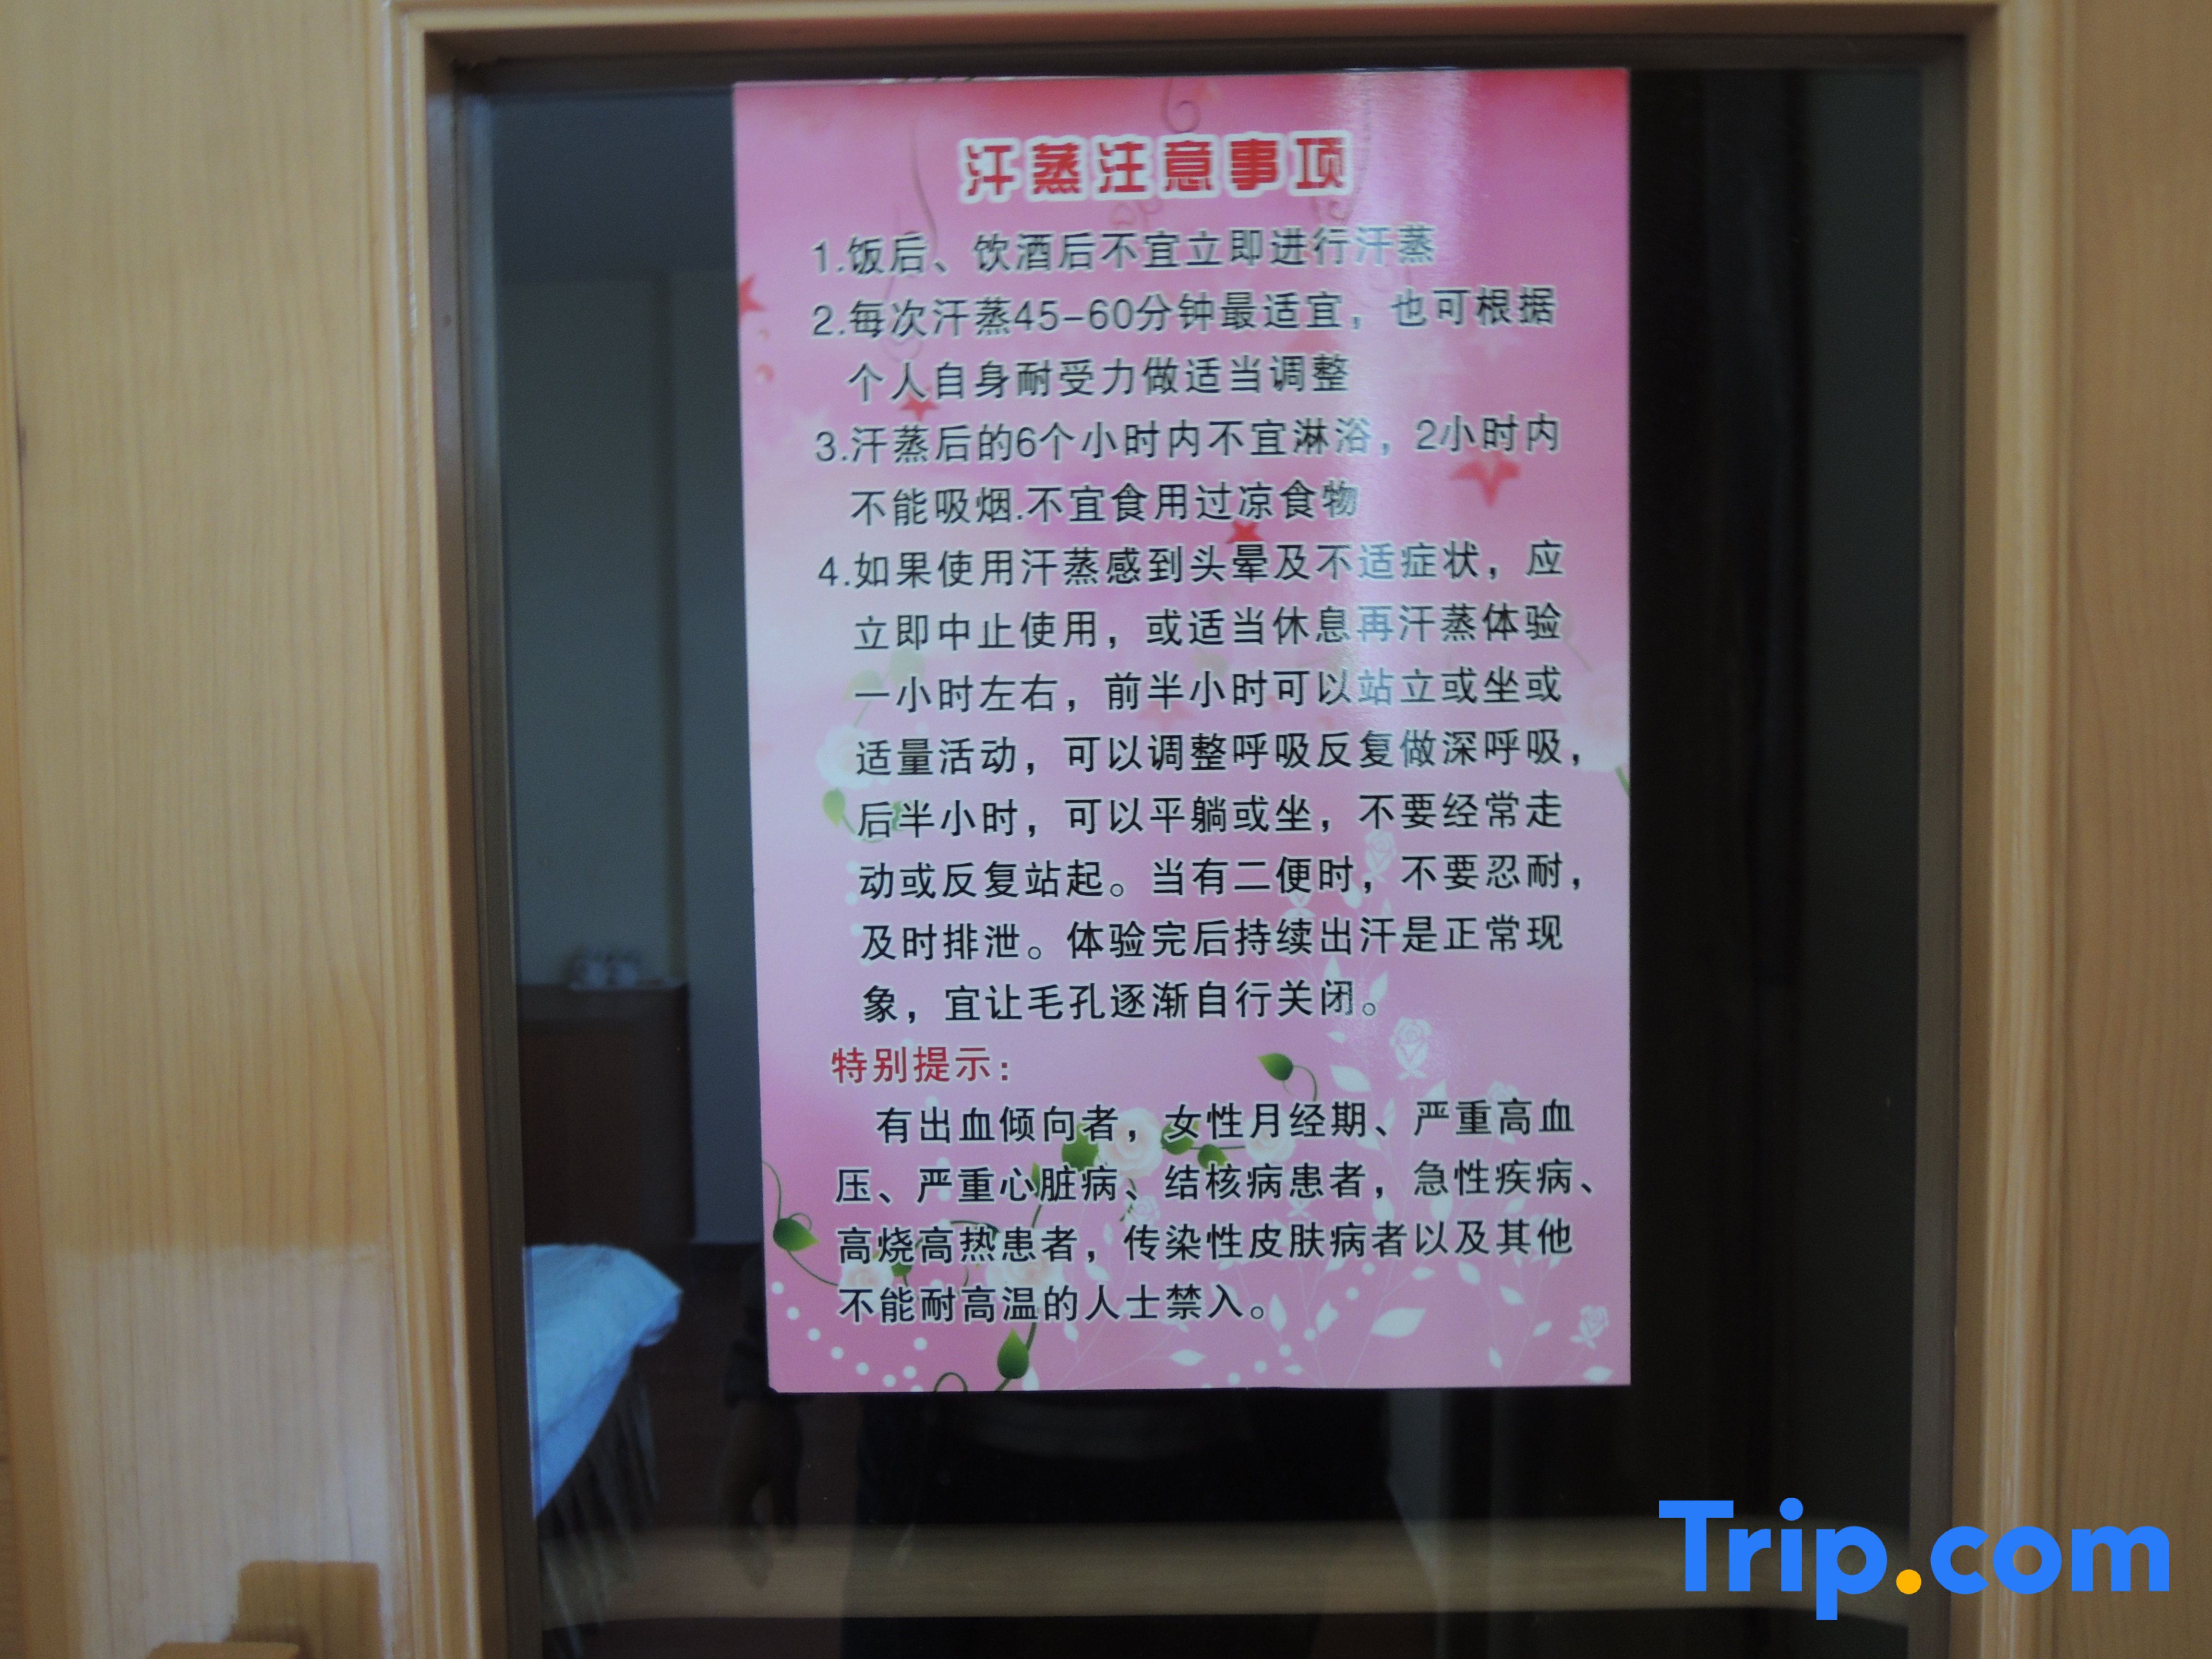 汗蒸注意事项
1.饭后、饮酒后不宜立即进行汗蒸
2.每次汗蒸45-60分钟最适宜，也可根据
个人自身耐受力做适当调整
3.汗蒸后的6个小时内不宜淋浴，2小时内
不能吸烟.不宜食用过凉食物
4.如果使用汗蒸感到头晕及不适症状，应
立即中止使用，或适当休息再汗蒸体验
一小时左右，前半小时可以站立或坐或
适量活动，可以调整呼吸反复做深呼吸，
后半小时，可以平躺或坐，不要经常走
动或反复站起。当有二便时，不要忍耐，
及时排泄。体验完后持续出汗是正常现
象，宜让毛孔逐渐自行关闭。
特别提示：
有出血倾向者，女性月经期、严重高血
压、严重心脏病、结核病患者，急性疾病、
高烧高热患者，传染性皮肤病者以及其他
不能耐高温的人士禁入。
Trip.com